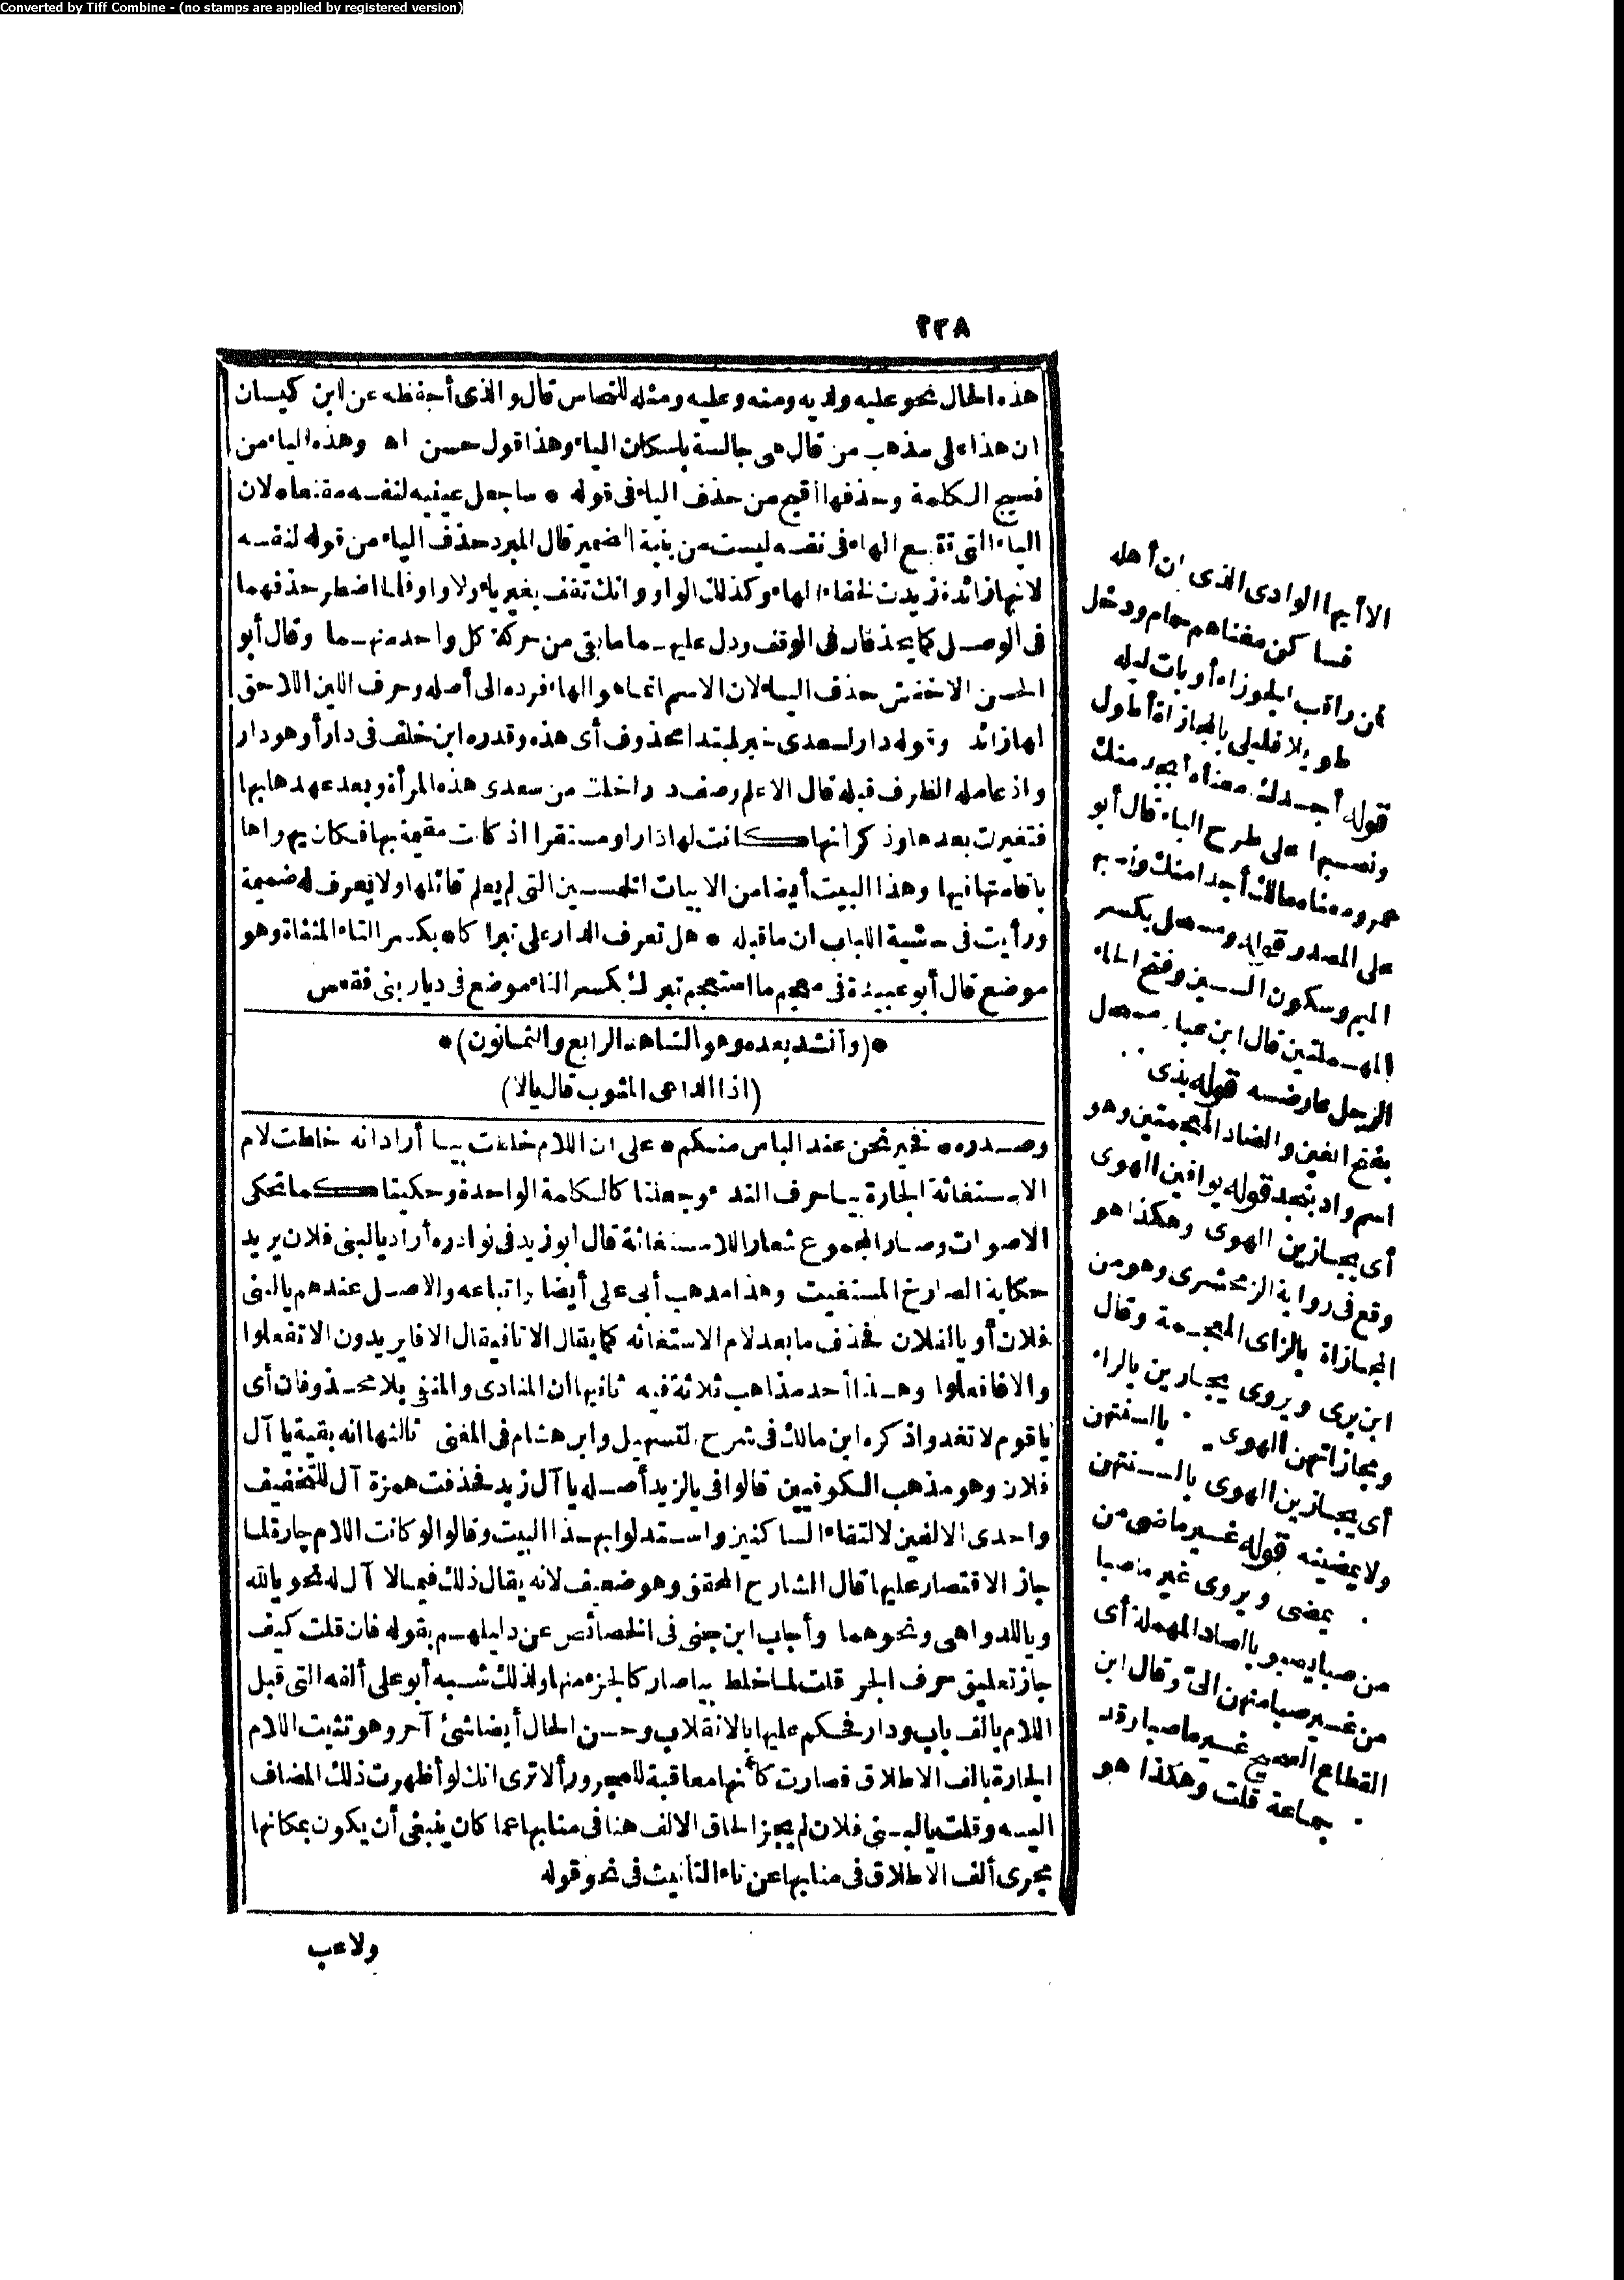 Converted by Tiff Combine - (no stamps are applied by registered version)
٢٢٨
هذه الحال نحو عليه ولديه ومنه وعليه ومثله للنحاس قال والذى أحفظه عن ابن كيسان
ان هذا على مذهب من قال هى جالسة باسكان الياء وهذا قول حسن اه وهذه الياء من
نسج الكلمة وحذفها أقبح من حذف الياء فى قوله * ساجعل عينيه لنفسه مقنعا * لان
الياء التى تتبع الهاء فى نفسه ليست من بنية الضمير قال المبرد حذف الياء من قوله لنفسه
لانها زائدة زيدت لخفاء الهاء وكذلك الواو وانك تقف بغير ياء ولا واو فلما اضطر حذفهما
فى الوصل كما يحذفان فى الوقف ودل عليهما ما بقى من حركة كل واحد منهما وقال أبو
الحسن الاخفش حذف الياء لان الاسم انما هو الهاء فرده الى أصله وحرف اللين اللاحق
لها زائد وقوله دار لسعدى خبر لمبتدا محذوف أى هذه وقدره ابن خلف فى دار أو هو دار
واذ عامله الظرف قبله قال الاعلم وصف دارا خلت من سعدى هذه المرأة وبعد عهدها بها
فتغيرت بعدها وذكر انها كانت لها دارا ومستقرا اذ كانت مقيمة بها فكان يهواها
باقامتها فيها وهذا البيت أيضا من الابيات الخمسين التى لم يعلم قائلها ولا يعرف له ضميمة
ورأيت فى حاشية اللباب ان ما قبله * هل تعرف الدار على تبراكا * بكسر التاء المثناة وهو
موضع قال أبو عبيدة فى معجم ما استعجم تبراك بكسر التاء موضع فى ديار بنى فقعس
*(وأنشد بعده وهو الشاهد الرابع والثمانون)*
(اذا الداعى المثوب قال يالا)
وصدره * فخير نحن عند الباس منكم * على ان اللام خلطت بيا أراد انه خلطت لام
الاستغاثة الجارة بيا حرف النداء وجعلتا كالكلمة الواحدة وحكيتا كما تحكى
الاصوات وصار المجموع شعارا للاستغاثة قال أبو زيد فى نوادره أراد يالبنى فلان يريد
حكاية الصارخ المستغيث وهذا مذهب أبى على أيضا واتباعه والاصل عندهم يالبنى
فلان أو يالفلان فحذف ما بعد لام الاستغاثة كما يقال الا تا فيقال الا فا يريدون الا تفعلوا
والا فافعلوا وهذا أحد مذاهب ثلاثة فيه ثانيها ان المنادى والمنفى بلا محذوفان أى
يا قوم لا تغدوا ذكره ابن مالك فى شرح التسهيل وابن هشام فى المغنى ثالثها انه بقية يا آل
فلان وهو مذهب الكوفيين قالوا فى يالزيد أصله يا آل زيد فحذفت همزة آل للتخفيف
واحدى الالفين لالتقاء الساكنين واستدلوا بهذا البيت وقالوا لو كانت اللام جارة لما
جاز الاقتصار عليها قال الشارح المحقق وهو ضعيف لانه يقال ذلك فيما لا آل له نحو يالله
وياللدواهى ونحوهما وأجاب ابن جنى فى الخصائص عن دليلهم بقوله فان قلت كيف
جاز تعليق حرف الجر قلت لما خلط بيا صار كالجزء منها ولذلك شبه أبو على ألفه التى قبل
اللام بالف باب ودار فحكم عليها بالانقلاب وحسن الحال أيضا شئ آخر وهو تثبت اللام
الجارة بالف الاطلاق فصارت كأنها معاقبة للمجرور ألا ترى انك لو أظهرت ذلك المضاف
اليه وقلت يالبنى فلان لم يجز الحاق الالف هنا فى منابها عما كان ينبغى أن يكون بمكانها
مجرى ألف الاطلاق فى منابها عن تاء التأنيث فى نحو قوله
ولاعب
الا أيها الوادى الذى بان أهله
فساكن مغناهم حمام ودخل
فمن راقب الجوزاء أو بات ليله
طويلا فليلى بالمجازاة أطول
قوله أجدك معناه أبجد منك
ونصبها على طرح الباء قال أبو
عمرو معناه مالك أجدا منك ونصبه
على المصدر قوله ومسحل بكسر
الميم وسكون السين وفتح الحاء
المهملتين قال ابن عباد مسحل
الرجل عارضه قوله بذى
بفتح الغين والضاد المعجمتين وهو
اسم واد بنجد قوله يوافين الهوى
أى يجازين الهوى وهكذا هو
وقع فى رواية الزمخشرى وهو من
المجازاة بالزاى المعجمة وقال
ابن برى ويروى يجارين بالراء
ومجاراتهن الهوى بالسنتهن
أى يجازين الهوى بالسنتهن
ولا يمضينه قوله غير ماضى من
يمضى ويروى غير ما صبا
من صبا يصبو بالصاد المهملة أى
من غير صبا منهن الىّ وقال ابن
القطاع الصحيح غير ما صبا وقد
جماعة قلت وهكذا هو